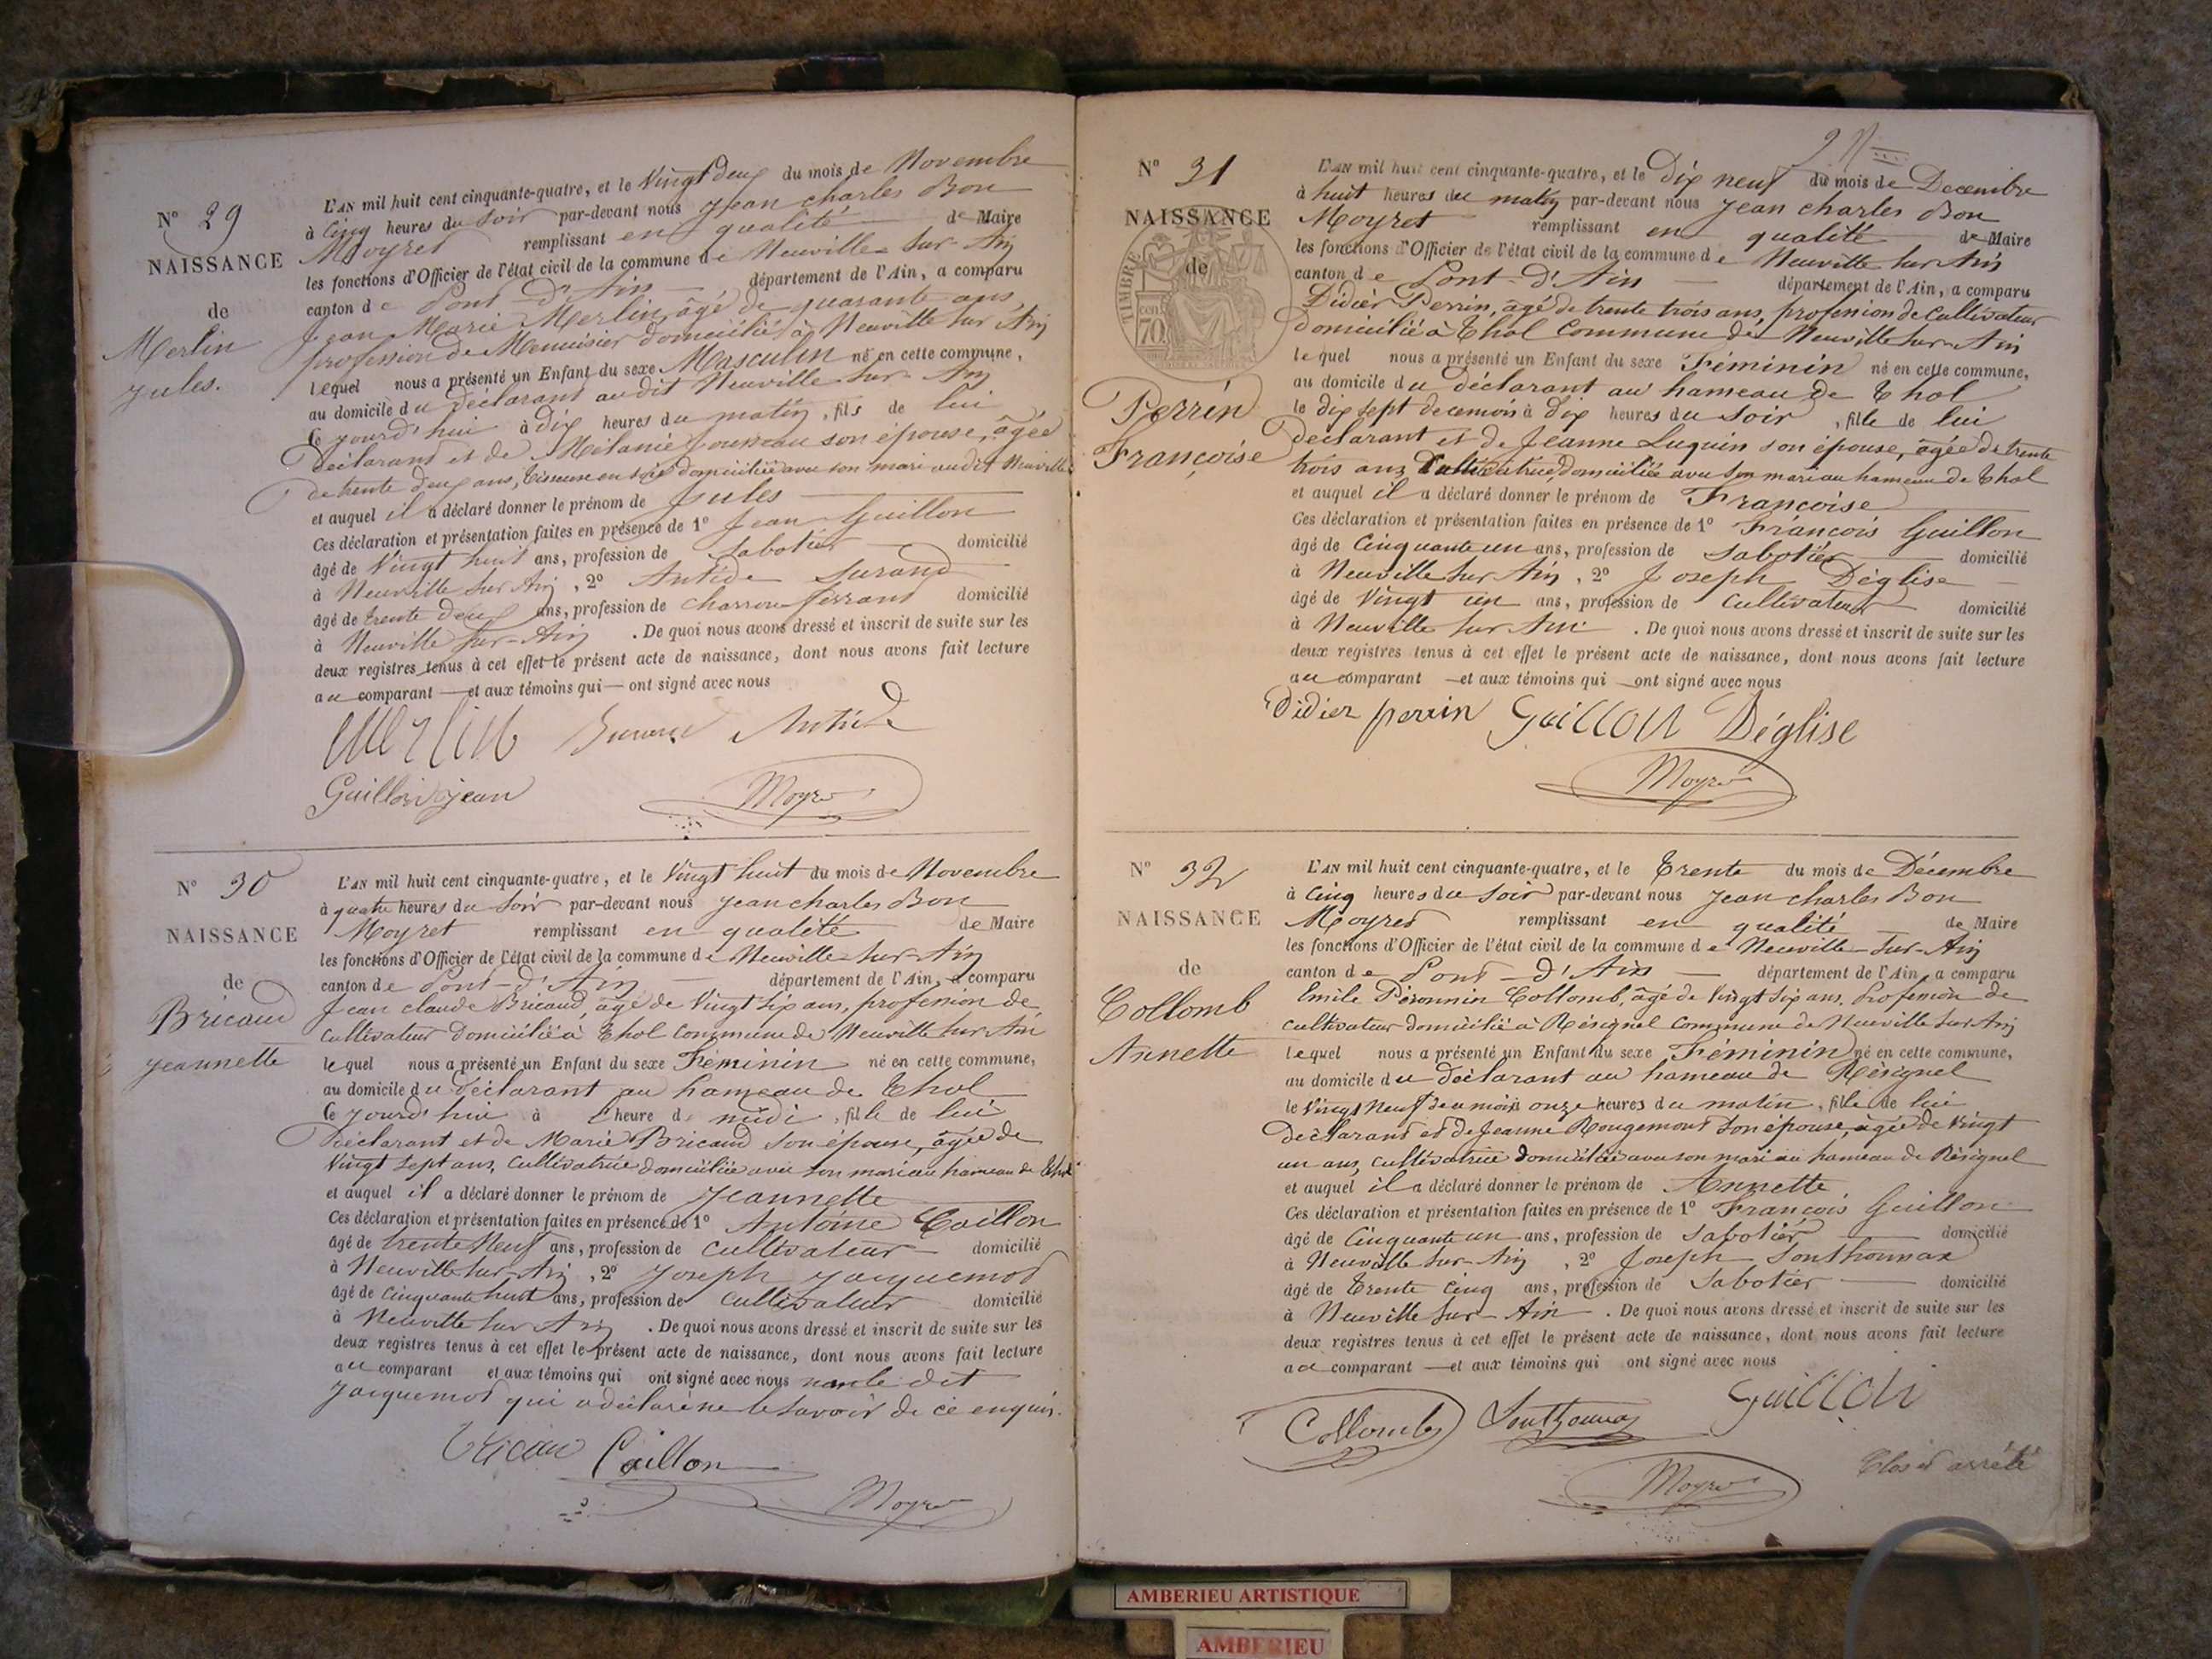 N° 29
NAISSANCE
de
Merlin
Jules.
L'AN mil huit cent cinquante-quatre, et le Vingt deux du mois de Novembre
à Cinq heures du Soir par-devant nous Jean charles Bon
Moyret remplissant en qualité de Maire
les fonctions d'Officier de l'état civil de la commune de Neuville-sur-Ain
canton de Pont-D'Ain département de l'Ain, a comparu
Jean Marie Merlin, âgé de quarante ans,
profession de Menuisier domicilié à Neuville sur Ain
lequel nous a présenté un Enfant du sexe Masculin né en cette commune,
au domicile du déclarant audit Neuville sur Ain
Ce jourd'hui à dix heures du matin, fils de lui
Déclarant et de Mélanie son épouse, âgée
de trente deux ans, tisseuse en soie domiciliée avec son mari audit Neuville
et auquel il a déclaré donner le prénom de Jules
Ces déclaration et présentation faites en présence de 1° Jean Guillon
âgé de Vingt huit ans, profession de Sabotier domicilié
à Neuville sur Ain, 2° Antide Surand
âgé de trente deux ans, profession de charron ferrant domicilié
à Neuville sur-Ain. De quoi nous avons dressé et inscrit de suite sur les
deux registres tenus à cet effet le présent acte de naissance, dont nous avons fait lecture
au comparant — et aux témoins qui — ont signé avec nous
Merlin Surand Antide
Guillon jean Moyret
N° 30
NAISSANCE
de
Bricaud
Jeannette
L'AN mil huit cent cinquante-quatre, et le Vingt huit du mois de Novembre
à quatre heures du Soir par-devant nous Jean charles Bon
Moyret remplissant en qualité de Maire
les fonctions d'Officier de l'état civil de la commune de Neuville-sur-Ain
canton de Pont-D'Ain département de l'Ain, a comparu
Jean claude Bricaud, âgé de Vingt six ans, profession de
Cultivateur Domicilié à Thol Commune de Neuville sur Ain
lequel nous a présenté un Enfant du sexe Féminin né en cette commune,
au domicile du Déclarant au hameau de Thol
Ce jourd'hui à l'heure de midi, fille de lui
Déclarant et de Marie Bricaud Son épouse, âgée de
Vingt sept ans, Cultivatrice domiciliée avec son mari au hameau de Thol
et auquel il a déclaré donner le prénom de Jeannette
Ces déclaration et présentation faites en présence de 1° Antoine Caillon
âgé de trente Neuf ans, profession de Cultivateur domicilié
à Neuville sur-Ain, 2° Joseph Jacquemod
âgé de Cinquante huit ans, profession de Cultivateur domicilié
à Neuville sur Ain. De quoi nous avons dressé et inscrit de suite sur les
deux registres tenus à cet effet le présent acte de naissance, dont nous avons fait lecture
au comparant et aux témoins qui ont signé avec nous non le dit
Jacquemod qui a déclaré ne le savoir de ce enquis.
Bricau Caillon
Moyret
N° 31
NAISSANCE
de
TIMBRE
70
Perrin
Françoise
L'AN mil huit cent cinquante-quatre, et le Dix neuf du mois de Decembre
à huit heures du matin par-devant nous Jean charles Bon
Moyret remplissant en qualité de Maire
les fonctions d'Officier de l'état civil de la commune de Neuville sur Ain
canton de Pont-D'Ain département de l'Ain, a comparu
Didier Perrin, âgé de trente trois ans, profession de Cultivateur
domicilié à Thol Commune de Neuville sur-Ain
lequel nous a présenté un Enfant du sexe Féminin né en cette commune,
au domicile du Déclarant au hameau de Thol
le dix sept de ce mois à Dix heures du Soir, fille de lui
Déclarant et de Jeanne Luquin son épouse, âgée de trente
trois ans Cultivatrice, domiciliée avec son mari au hameau de Thol
et auquel il a déclaré donner le prénom de Françoise
Ces déclaration et présentation faites en présence de 1° François Guillon
âgé de Cinquante un ans, profession de Sabotier domicilié
à Neuville sur Ain, 2° Joseph Déglise
âgé de Vingt un ans, profession de Cultivateur domicilié
à Neuville sur Ain. De quoi nous avons dressé et inscrit de suite sur les
deux registres tenus à cet effet le présent acte de naissance, dont nous avons fait lecture
au comparant — et aux témoins qui — ont signé avec nous
Didier perrin Guillon Déglise
Moyret
N° 32
NAISSANCE
de
Collomb
Annette
L'AN mil huit cent cinquante-quatre, et le Trente du mois de Décembre
à Cinq heures du Soir par-devant nous Jean charles Bon
Moyret remplissant en qualité de Maire
les fonctions d'Officier de l'état civil de la commune de Neuville-sur-Ain
canton de Pont-d'Ain département de l'Ain, a comparu
Emile Péronnin Collomb, âgé de Vingt six ans, Profession de
Cultivateur domicilié à Résignel Commune de Neuville sur Ain
lequel nous a présenté un Enfant du sexe Féminin né en cette commune,
au domicile du Déclarant au hameau de Résignel
le Vingt Neuf de ce mois onze heures du matin, fille de lui
Déclarant et de Jeanne Rougemont son épouse, âgée de Vingt
un ans, Cultivatrice Domiciliée avec son mari au hameau de Résignel
et auquel il a déclaré donner le prénom de Annette
Ces déclaration et présentation faites en présence de 1° François Guillon
âgé de Cinquante un ans, profession de Sabotier domicilié
à Neuville sur-Ain, 2° Joseph Sonthonnax
âgé de Trente Cinq ans, profession de Sabotier domicilié
à Neuville sur-Ain. De quoi nous avons dressé et inscrit de suite sur les
deux registres tenus à cet effet le présent acte de naissance, dont nous avons fait lecture
au comparant — et aux témoins qui ont signé avec nous
Collomb Sonthonnax Guillon
Moyret
Clos et arrêté
AMBERIEU ARTISTIQUE
AMBERIEU